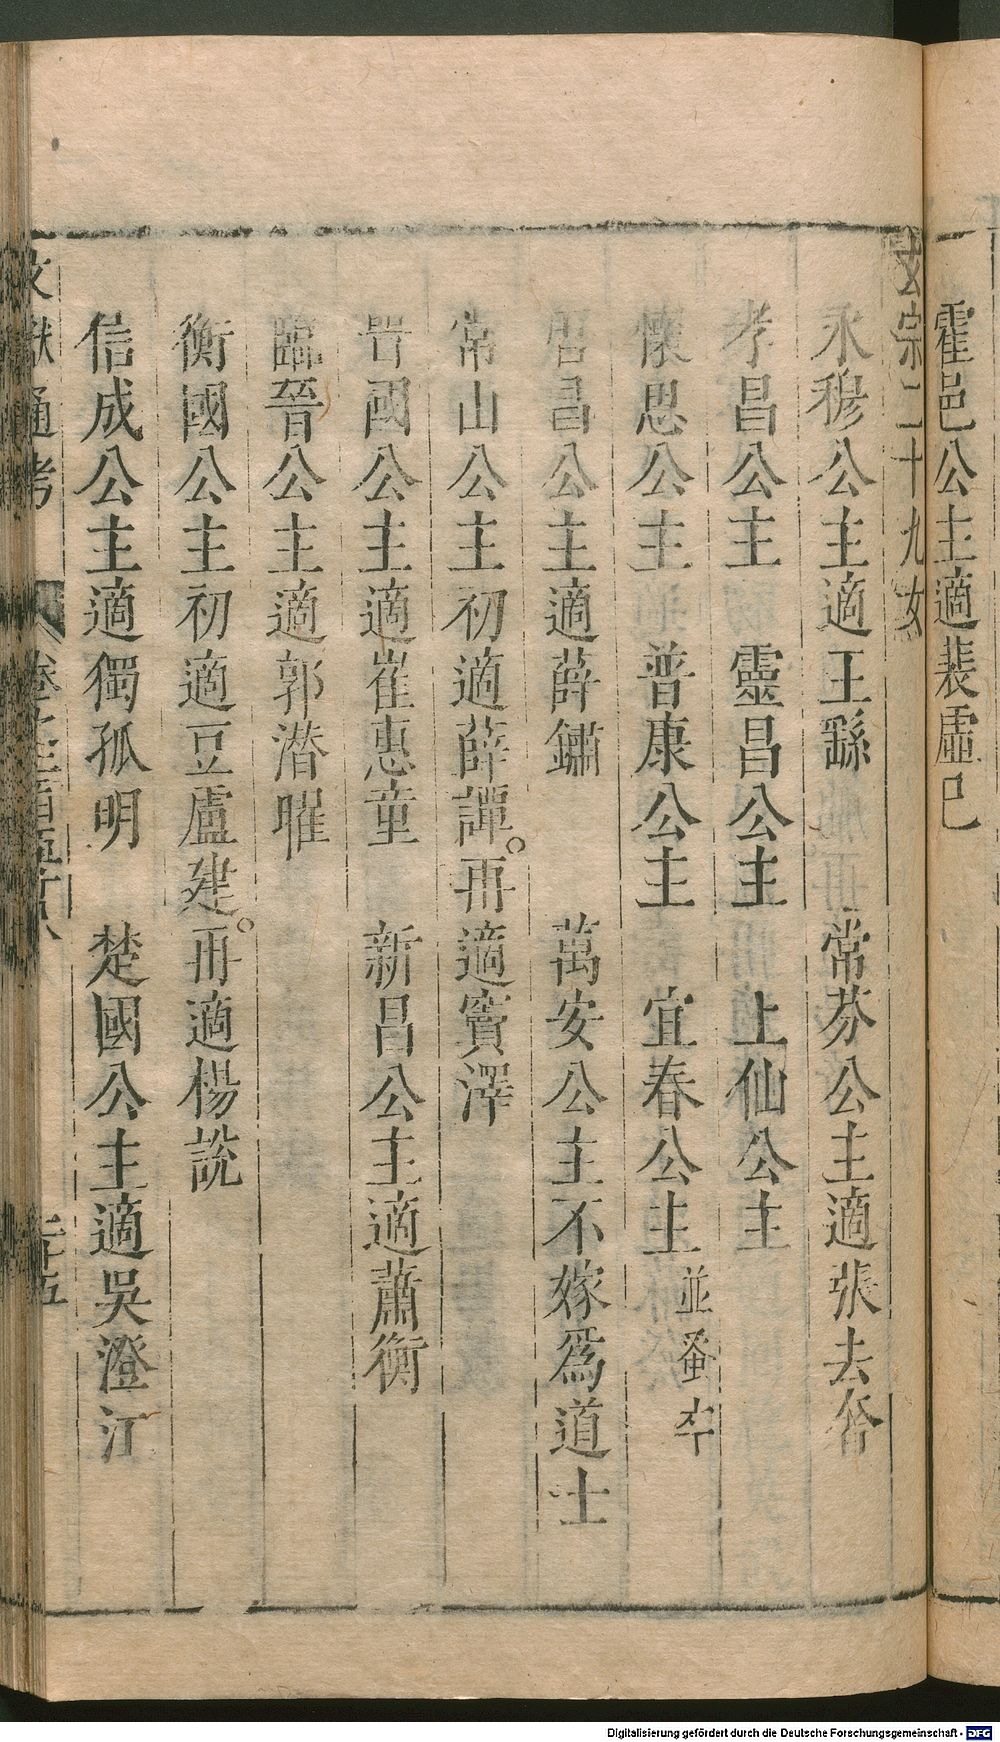 霍邑公主適裴虛已
玄宗二十九女
永穆公主適王繇　常芬公主適張去奢
孝昌公主　靈昌公主　上仙公主
懷思公主　普康公主　宜春公主並蚤卒
唐昌公主適薛鏽　萬安公主不嫁爲道士
常山公主初適薛譚。再適竇澤
晉國公主適崔惠童　新昌公主適蕭衡
臨晉公主適郭潜曜
衡國公主初適豆盧建。再適楊說
信成公主適獨孤明　楚國公主適吳澄江
文獻通考　卷二百五十八　二十五
Digitalisierung gefördert durch die Deutsche Forschungsgemeinschaft - DFG